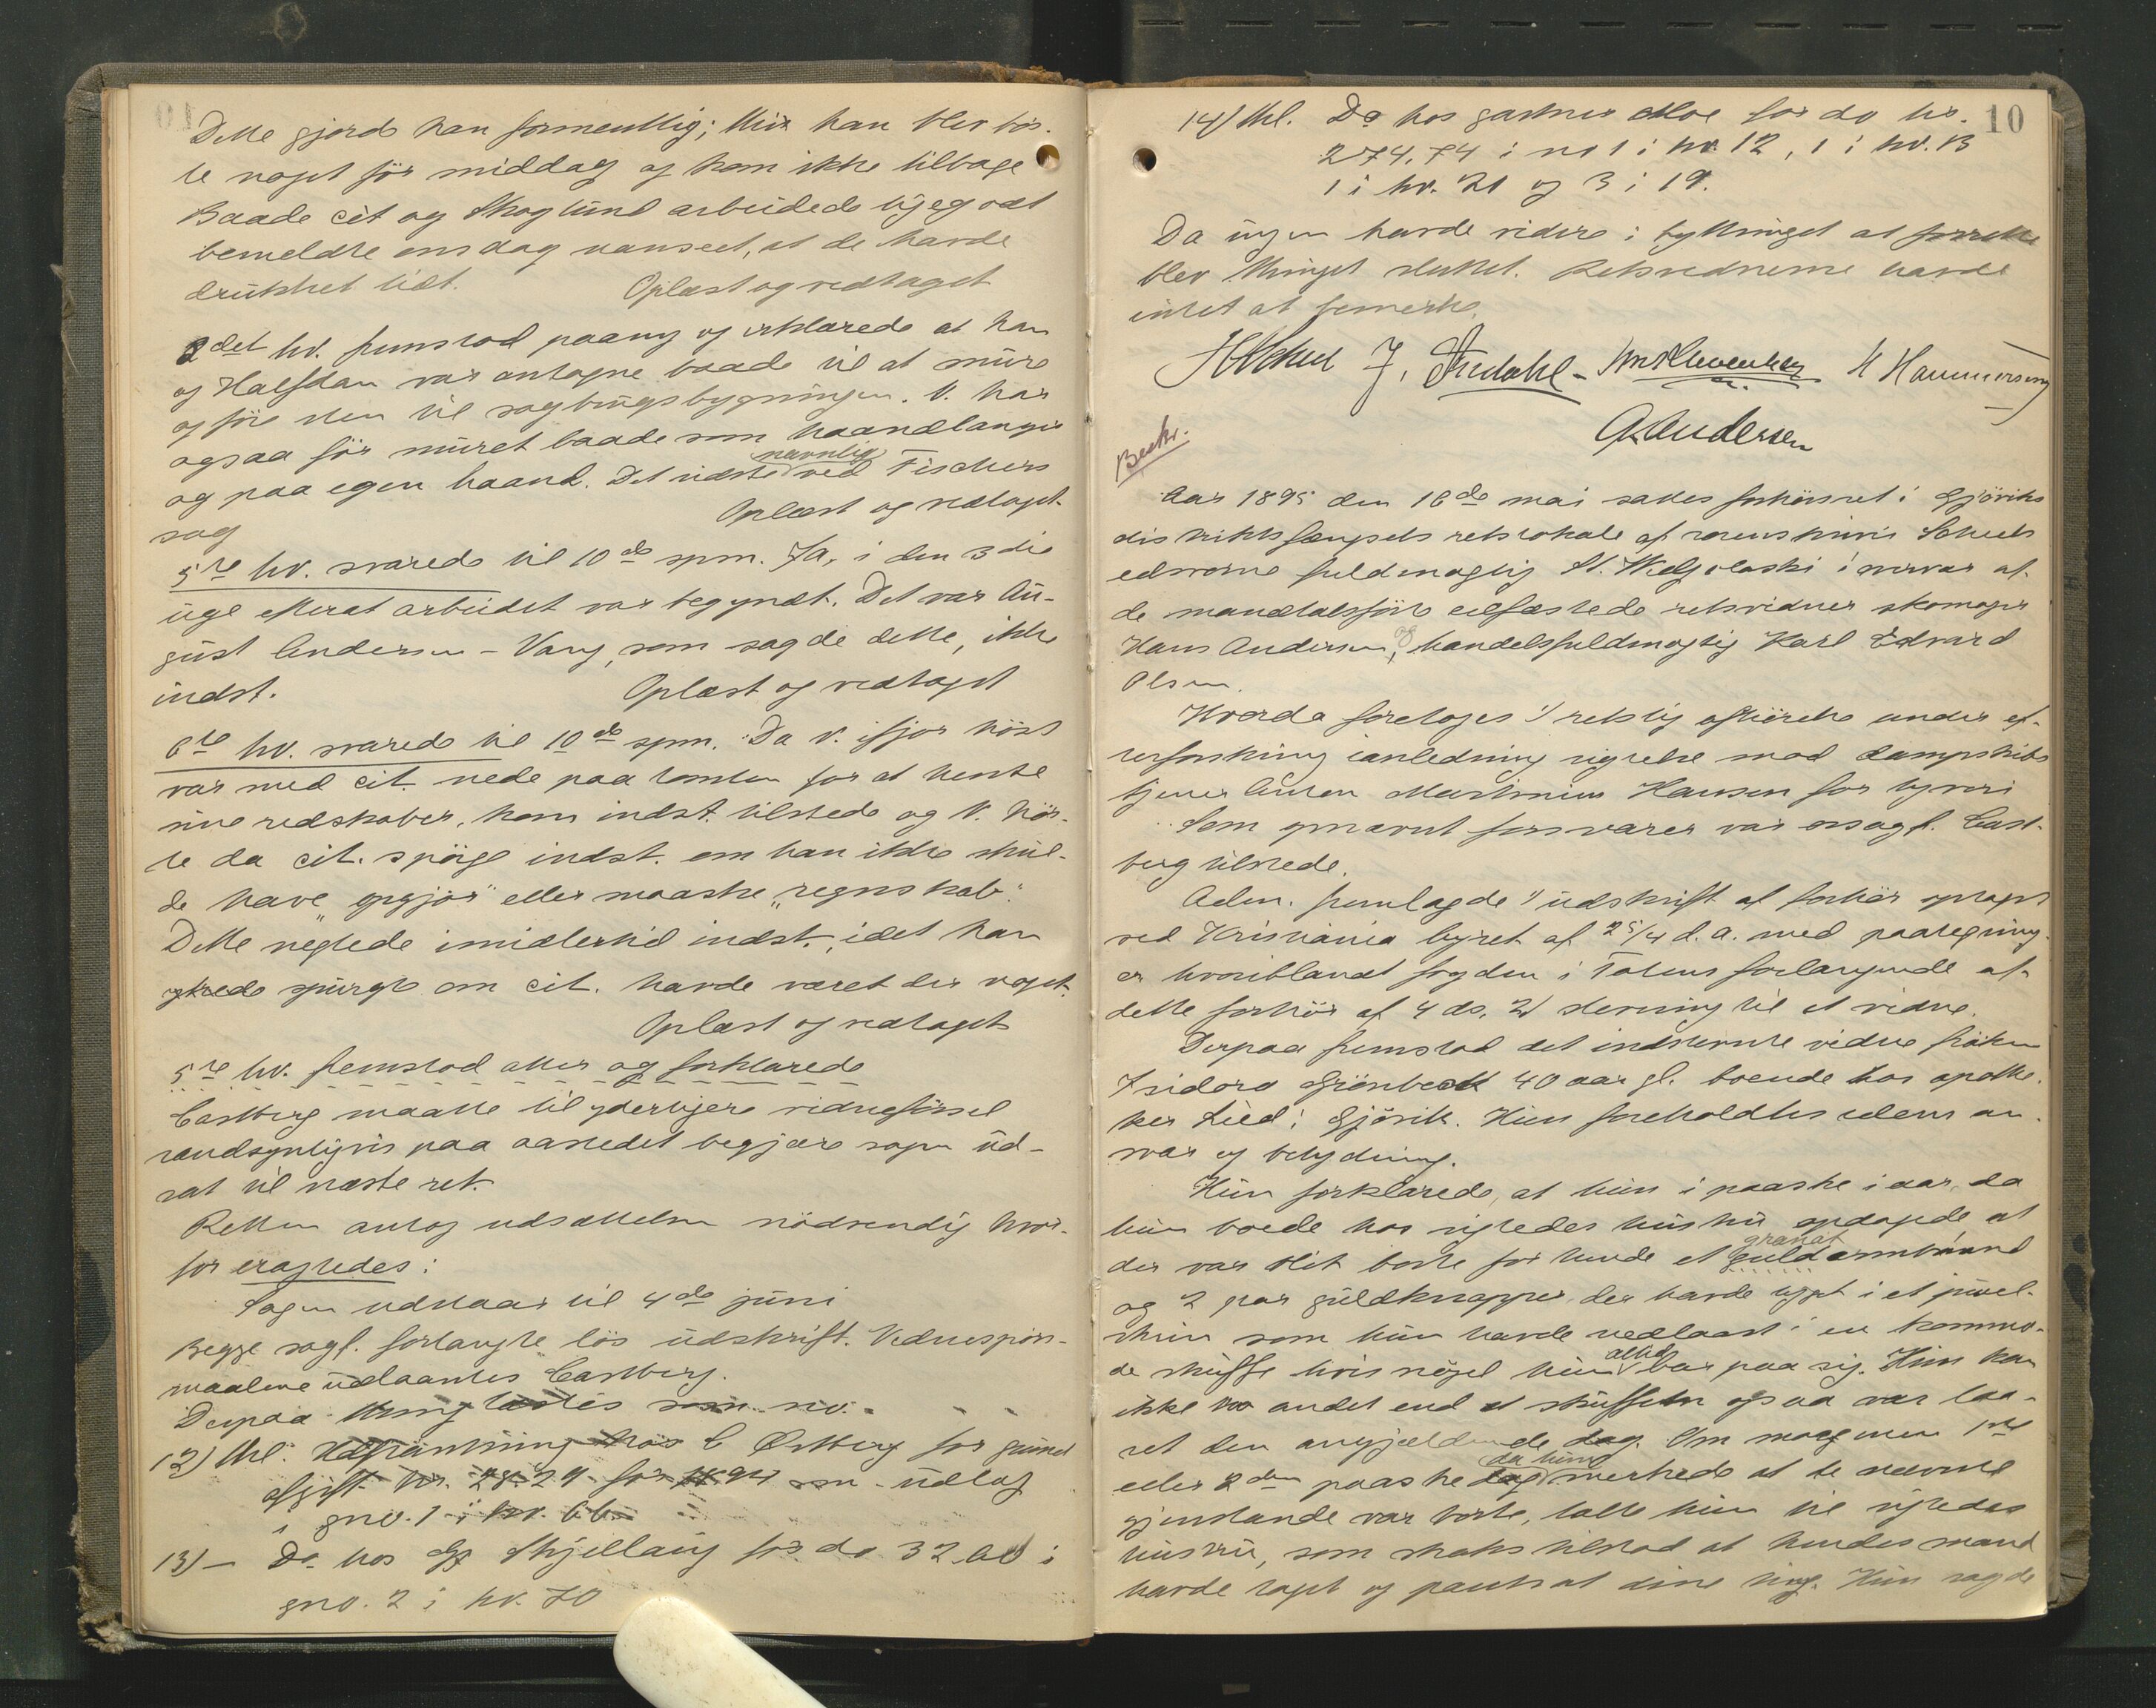 Dette gjorde han formentlig; thi han blev bor-
te noget før middag og kom ikke tilbage
Baade cit og Skoglund arbeidede ligegodt
bemeldte onsdag uanseet, at de havde
drukket lidt. Oplæst og vedtaget
2det hv. fremstod paany og erklærede at han
og Halfdan var antagne baade til at mure
og føre sten til sagbrugsbygningen. V. har
ogsaa før muret baade som haandlanger
og paa egen haand. Det sidste navnlig ved Fischers
sag Oplæst og vedtaget
5te hv. svarede til 10de spm. Ja, i den 3die
uge efterat arbeidet var begyndt. Det var Au-
gust Andersen - Vang, som sagde dette, ikke
indst. Oplæst og vedtaget
6te hv. svarede til 10de spm. Da v. ifjor høst
var med cit. nede paa tomten for at hente
sine redskaber, kom indst. tilstede og V. hør-
te da cit. spørge indst. om han ikke skul-
de have "opgjør" eller maaske "regnskab".
Dette negtede imidlertid indst., idet han
spurgte om cit. havde været der noget.
Oplæst og vedtaget
5te hv. fremstod atter og forklarede
Castberg maatte til yderligere vidneførsel
sandsynligvis paa aastedet begjære sagen ud-
sat til næste ret.
Retten antog udsættelsen nødvendig hvor-
for eragtedes:
Sagen udstaar til 4de juni
Begge sagf. forlangte løs udskrift. Vidnespørs-
maalene udlaantes Castberg.
Derpaa thinglæstes som no.
12) thl. Udpantning hos C Østberg for grund
afgift kr. 28.29 for 94 udlæg
i gno. 1 i hv. 66
13) — Do hos Skjellaug for do 32.60 i
gno. 2 i hv. 70
10
14) thl. Do hos gartner Moe for do kr.
274.74 i no 1 i hv. 12, 1 i hv. 13
1 i hv. 21 og 3 i 19.
Da ingen havde videre i bythinget at forrette
blev thinget sluttet. Retsvidnerne havde
intet at bemerke.
J. H Hammerseng
A. Andersen
Beskr.
Aar 1895 den 16de mai sattes forhørsret i Gjøviks
distriktsfængsels retslokale af sorenskriver Scheels
edsvorne fuldmægtig i nærvær af
de mandtalsførte edfæstede retsvidner skomager
Hans Andersen og handelsfuldmægtig Karl Edvard
Olsen.
Hvorda foretoges 1) retslig afhørelse under ef-
terforskning i anledning sigtelse mod dampskibs
tjener Anton Martinius Hansen for tyveri
Som opnævnt forsvarer var ovsagf. Cast-
berg tilstede.
Adm. fremlagde 1) udskrift af forhør optaget
ved Kristiania byret af 25/4 d. a. med paategning-
er hvoriblandt fogden i Totens forlangende af
dette forhør af 4 ds. 2) stevning til et vidne.
Derpaa fremstod det indstevnte vidne frøken
Isidora Grønbeck 40 aar gl. boende hos apothe-
ker Lied i Gjøvik. Hun foreholdtes edens an-
svar og betydning.
Hun forklarede, at hun i paaske i aar, da
hun boede hos sigtedes hustru, opdagede, at
der var blit borte for hende et granat guldarmbaand
og 2 par guldknapper der havde ligget i et juvel-
skrin som hun havde nedlaast i en kommo-
de skuffe hvis nøgel hun altid bar paa sig. Hun kan
ikke tro andet end at skuffen ogsaa var laa-
set den angjældende dag. Om morgenen 1ste
eller 2den paaskedag da hun merkede at de nævnte
gjenstande var borte, talte hun til sigtedes
hustru, som straks tilstod at hendes mand
havde taget og pantsat dine ting. Hun sagde